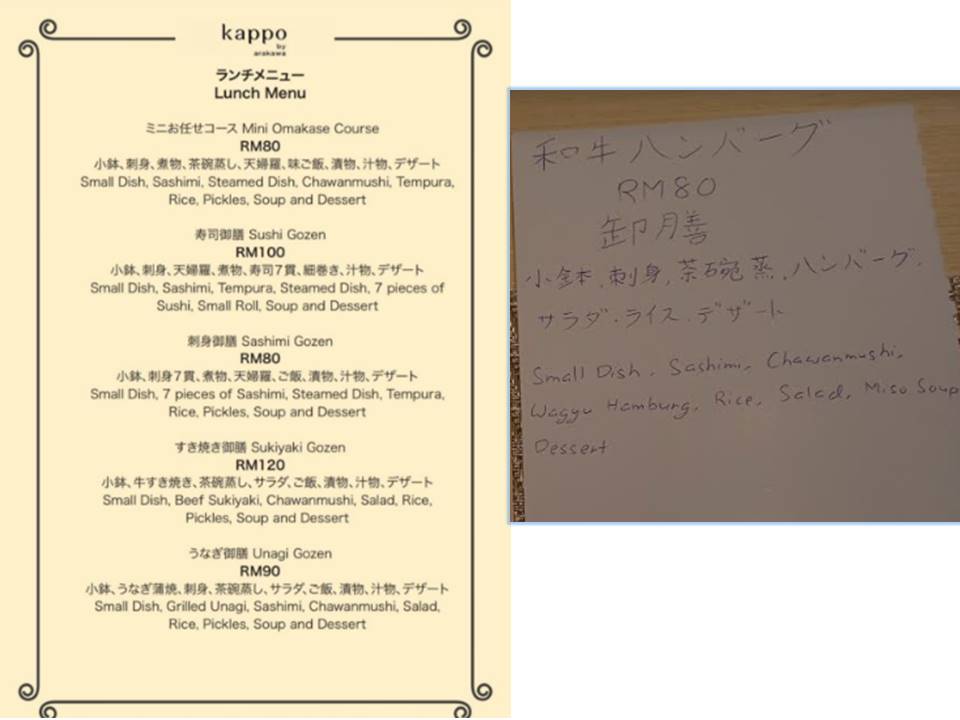 kappo
by
arakawa
ランチメニュー
Lunch Menu
ミニお任せコース Mini Omakase Course
RM80
小鉢、刺身、煮物、茶碗蒸し、天婦羅、味ご飯、漬物、汁物、デザート
Small Dish, Sashimi, Steamed Dish, Chawanmushi, Tempura,
Rice, Pickles, Soup and Dessert
寿司御膳 Sushi Gozen
RM100
小鉢、刺身、天婦羅、煮物、寿司7貫、細巻き、汁物、デザート
Small Dish, Sashimi, Tempura, Steamed Dish, 7 pieces of
Sushi, Small Roll, Soup and Dessert
刺身御膳 Sashimi Gozen
RM80
小鉢、刺身7貫、煮物、天婦羅、ご飯、漬物、汁物、デザート
Small Dish, 7 pieces of Sashimi, Steamed Dish, Tempura,
Rice, Pickles, Soup and Dessert
すき焼き御膳 Sukiyaki Gozen
RM120
小鉢、牛すき焼き、茶碗蒸し、サラダ、ご飯、漬物、汁物、デザート
Small Dish, Beef Sukiyaki, Chawanmushi, Salad, Rice,
Pickles, Soup and Dessert
うなぎ御膳 Unagi Gozen
RM90
小鉢、うなぎ蒲焼、刺身、茶碗蒸し、サラダ、ご飯、漬物、汁物、デザート
Small Dish, Grilled Unagi, Sashimi, Chawanmushi, Salad,
Rice, Pickles, Soup and Dessert
和牛ハンバーグ
RM80
卸膳
小鉢,刺身,茶碗蒸,ハンバーグ,
サラダ.ライス.デザート
Small Dish, Sashimi, Chawanmushi,
Wagyu Hamburg, Rice, Salad, Miso Soup
Dessert